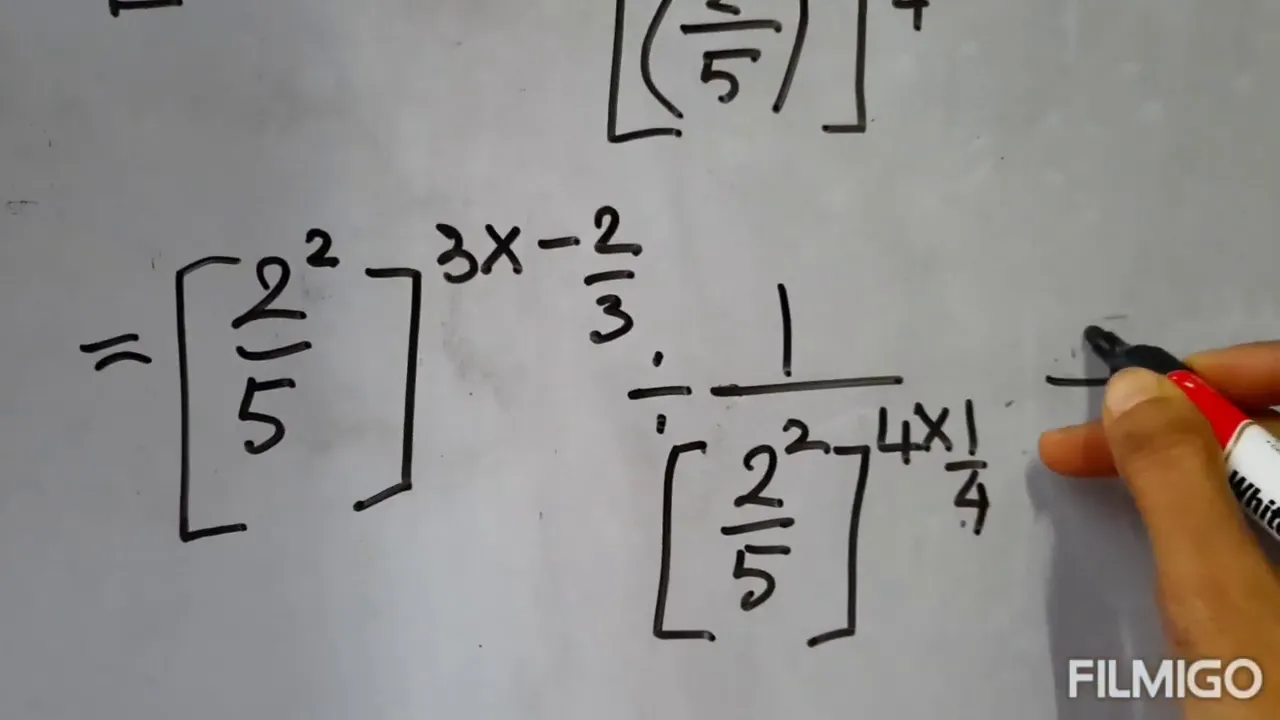 [(2/5)]^4
= [2^2/5]^(3×-2/3) ÷ 1/[2^2/5]^(4×1/4)
White
FILMIGO